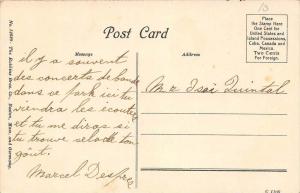 Post Card
Message
Address
Place
the Stamp Here
One Cent for
United States and
Island Possessions,
Cuba, Canada and
Mexico.
Two Cents
For Foreign.
il y a souvent
des concerts de bande
dans ce park ici tu
viendra les écouter
et tu me diras si
tu trouve cela de ton
goût.
Marcel Després
Mr Isaï Quintal